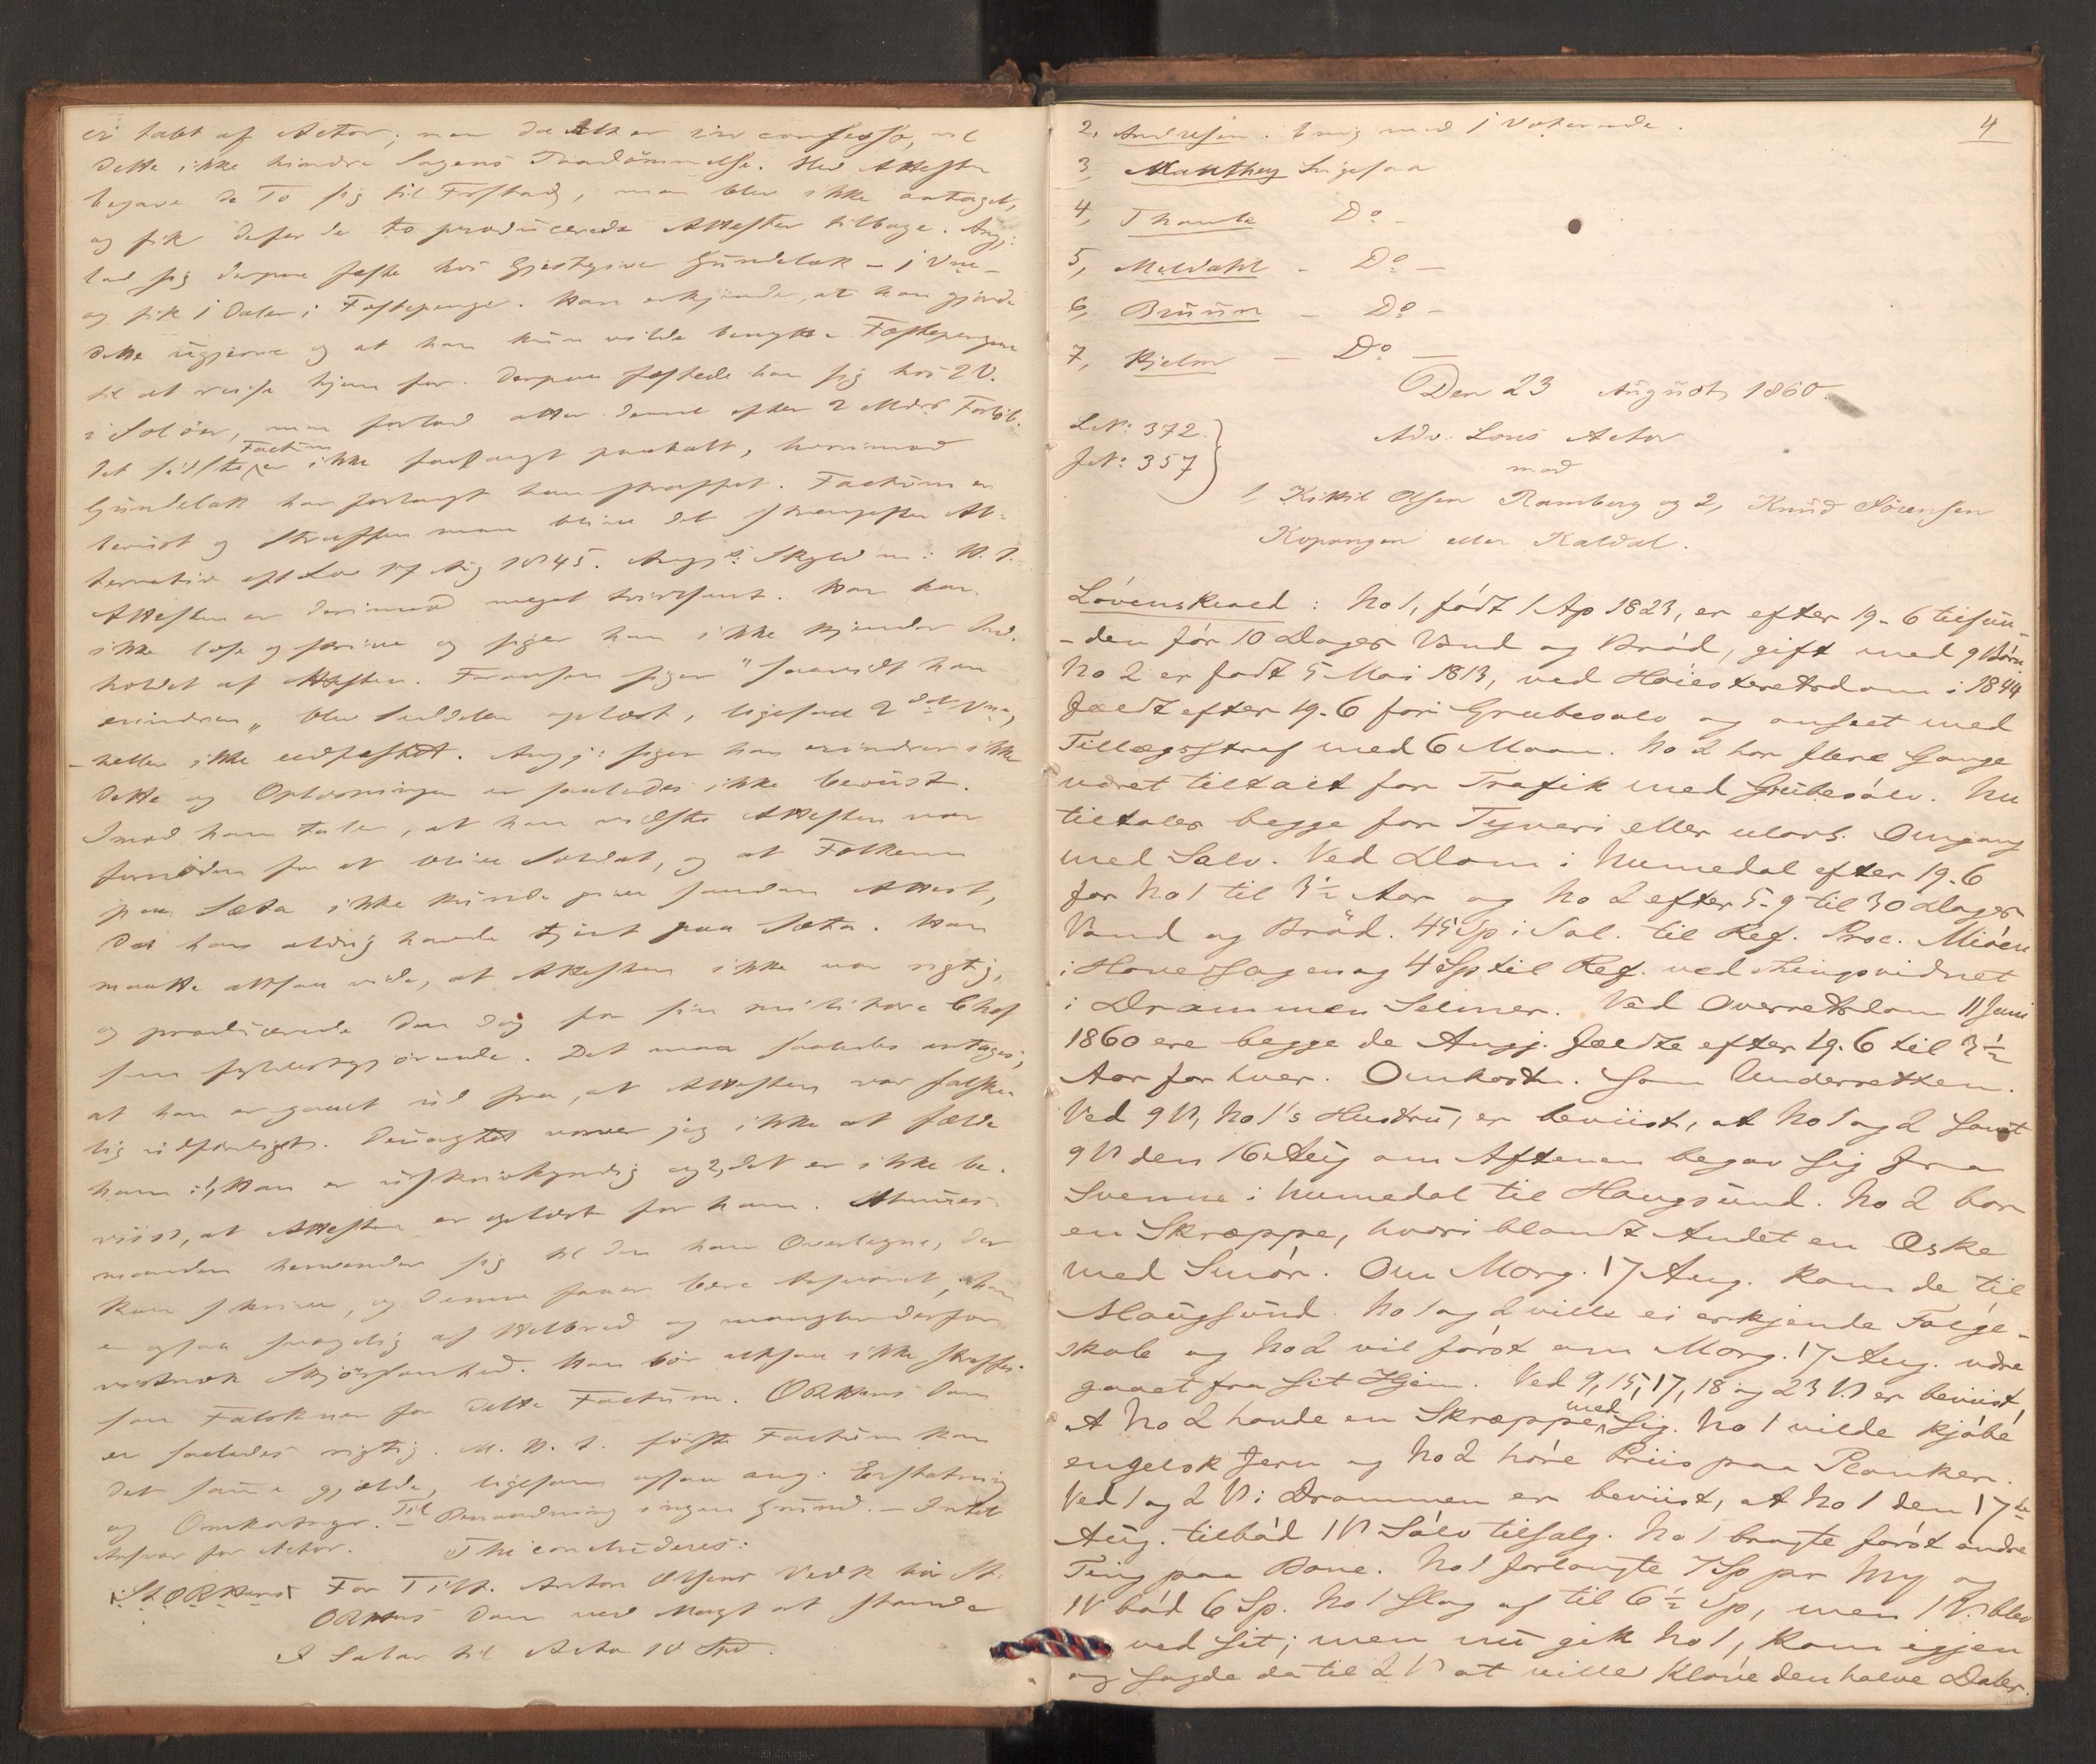 ei talt af Actor; men da Alt er in confesso, vil
dette ikke hindre Sagens Paadömmelse. Med Attesten
begave de To sig til Fæstad, men blev ikke antaget,
og fik derfor de to producerede Attester tilbage. Ang:
lod sig derpaa fæste hos Gjestgiver Gundelak - 1 Vne -
og fik 1 Daler i Fæstepenge. Han erkjender, at han gjorde
dette ugjerne og at han kun vilde benytte Fæstepengene
til at reise hjem for. Derpaa fæstede han sig hos 2 V.
i Soløer, men forlod atter denne efter 2 Mdrs Forløb.
Det sidste Factum er ikke forlangt paatalt, hvorimod
Gundelak har forlangt ham straffet. Factum er
beviist og Straffen maa blive det strengeste Al-
ternativ eft Lov 17 Aug 1845. Angj: Skyld m: H. t.
Attesten er derimod meget tvivlsomt. Han kan
ikke læse og skrive og siger han ikke kjender Ind-
holdet af Attesten. Fransen siger "saavidt han
erindrer" blev Seddelen oplæst, ligesaa 2det Vne,
- heller ikke eedfæstet. Angj: siger han erindrer ikke
dette og Oplæsningen er saaledes ikke beviist.
Imod ham taler, at han vidste Attesten var
fornöden for at blive Soldat, og at Folkene
paa Sæta ikke kunde give saadan Attest,
da han aldrig havde tjent paa Sæta. Han
maatte altsaa vide, at Attesten ikke var rigtig,
og producerede den dog for sin militære Chef
som fyldestgjörende. Det maa saaledes antages,
at han er gaaet ud fra, at Attesten var falske-
lig udfærdiget. Deruagtet vover jeg ikke at fælde
ham: 1, Han er uskrivekyndig og 2, det er ikke be-
viist, at Attesten er oplæst for ham. Almues-
manden henvender sig til den ham Overlegne, der
kan skrive, og denne faaer bære Ansvaret; han
er ogsaa svagelig af Helbred og mangler derfor
vistnok Skjösomhed. Han bör altsaa ikke straffes
som Falskner for dette Factum. ORttens Dom
er saaledes rigtig. M. H. t. første Factum kan
det samme gjælde, ligesom ogsaa ang: Erstatning
og Omkostninger. Til Benaadning ingen Grund. - Intet
Ansvar for Actor. Thi concluderes:
StORttens For Tilt. Anton Olsens Vedk bör St.
ORttens Dom ved Magt at stande
I Salær til Actor 10 Spd.
4
2, Andresen. Enig med 1 Voterende.
3, Manthey Ligesaa
4, Thaule Do -
5, Meldahl - Do -
6, Bruun - Do -
7, Hjelm - Do -
Den 23 August 1860.
L.No: 372.
J.No: 357
Adv: Lous Actor
mod
1, Kittil Olsen Ramberg og 2, Knud Sörensen
Kopangen eller Kaldal.
Lövenskiold: No 1, födt 1 Ap 1823, er efter 19-6 tilfun-
- den för 10 Dages Vand og Bröd, gift med 9 Börn.
No 2 er födt 5 Mai 1813, ved Höiesteretsdom i 1844
fældt efter 19-6 for Grubesölv og anseet med
Tillægsstraf med 6 Maan. No 2 har flere Gange
været tiltalt for Trafik med Grubesölv. Nu
tiltales begge for Tyveri eller ulovl. Omgang
med Sölv. Ved Dom i Numedal efter 19-6
for No 1 til 3½ Aar og No 2 efter 5-9 til 30 Dages
Vand og Bröd. 45 Sp i Sal. til Ref. Proc. Miöen
i Hovedsagen og 4 Sp til Ref. ved Thingsvidnet
i Drammen Selmer. Ved Overretsdom 11 Juni
1860 ere begge de Angj. fældte efter 19-6 til 3½
Aar for hver. Omkostn. som Underretten.
Ved 9 V, No 1's Hustru, er beviist, at No 1 og 2 samt
9 V den 16 Aug om Aftenen begav sig fra
Svenne i Numedal til Haugsund. No 2 bar
en Skræppe, hvori blandt Andet en Æske
med Smör. Om Morg. 17 Aug. kom de til
Haugsund. No 1 og 2 ville ei erkjende Følge-
skab og No 2 vil först om Morg. 17 Aug. være
gaaet fra sit Hjem. Ved 9, 15, 17, 18 og 23 V. er beviist,
At No 2 havde en Skræppe med sig. No 1 vilde kjöbe
engelsk Jern og No 2 höre Priis paa Planker.
Ved 1 og 2 V i Drammen er beviist, at No 1 den 17de
Aug. tilböd 1 V Sölv tilsalg. No 1 bragte först andre
Ting paa Bane. No 1 forlangte 7 Sp pr Mrk og
1 V böd 6 Sp. No 1 slog af til 6½ Sp, men 1 V. blev
ved sit; men nu gik No 1, kom igjen
og sagde da til 2 V at ville klöve den halve Daler.